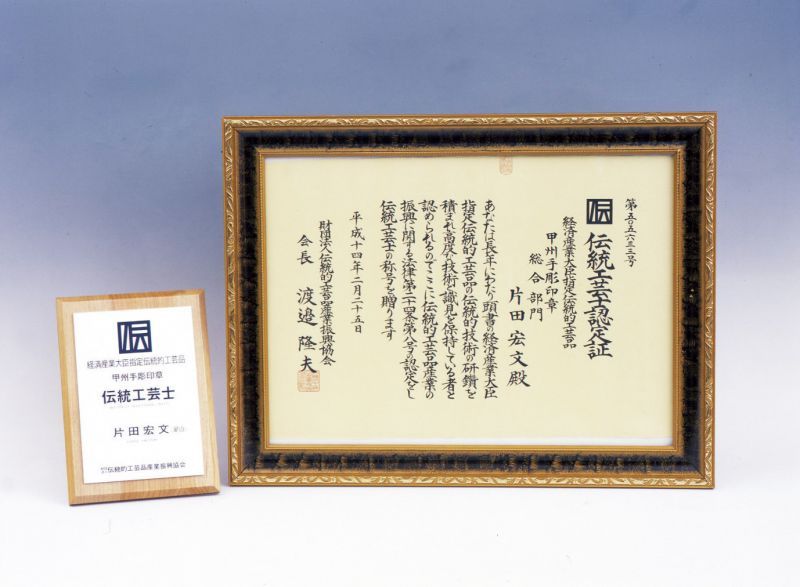 経済産業大臣指定伝統的工芸品
甲州手彫印章
伝統工芸士
片田宏文
伝統的工芸品産業振興協会
伝統工芸士認定証
経済産業大臣指定伝統的工芸品
甲州手彫印章
総合部門
片田宏文殿
あなたは長年にわたり頭書の経済産業大臣
指定伝統的工芸品の伝統的技術の研鑽を
積まれ高度な技術と識見を保持している者と
認められるのでここに伝統的工芸品産業の
振興に関する法律第二十四条第八号の認定をし
伝統工芸士の称号を贈ります
平成十四年二月二十五日
財団法人伝統的工芸品産業振興協会
会長 渡邉隆夫